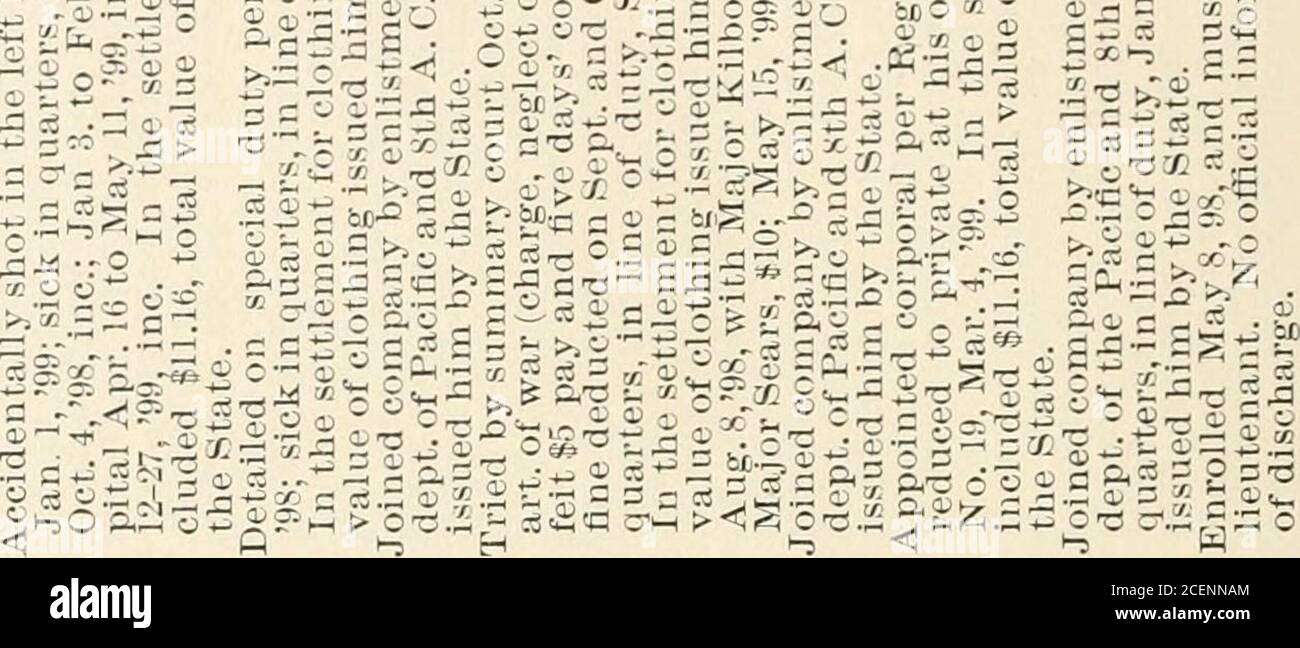 Accidentally shot in the left
Jan. 1, '99; sick in quarters,
Oct. 4, '98, inc.; Jan 3. to Fe
pital Apr. 16 to May 11, '99, in
12-27, '99, inc. In the settle
cluded $11.16, total value of
the State.
Detailed on special duty per
'98; sick in quarters, in line
In the settlement for clothi
value of clothing issued him
Joined company by enlistme
dept. of Pacific and 8th A. C.
issued him by the State.
Tried by summary court Oct.
art. of war (charge, neglect o
feit $5 pay and five days' co
fine deducted on Sept. and
quarters, in line of duty, S
In the settlement for clothi
value of clothing issued him
Aug. 8, '98, with Major Kilbo
Major Sears, $10; May 15, '99
Joined company by enlistme
dept. of Pacific and 8th A. C
issued him by the State.
Appointed corporal per Reg
reduced to private at his o
No. 19, Mar. 4, '99. In the s
included $11.16, total value
the State.
Joined company by enlistme
dept. of the Pacific and 8th
quarters, in line of duty, Jan
issued him by the State.
Enrolled May 8, 98, and mus
lieutenant. No official infor
of discharge.
alamy
Image ID: 2CENNAM
www.alamy.com